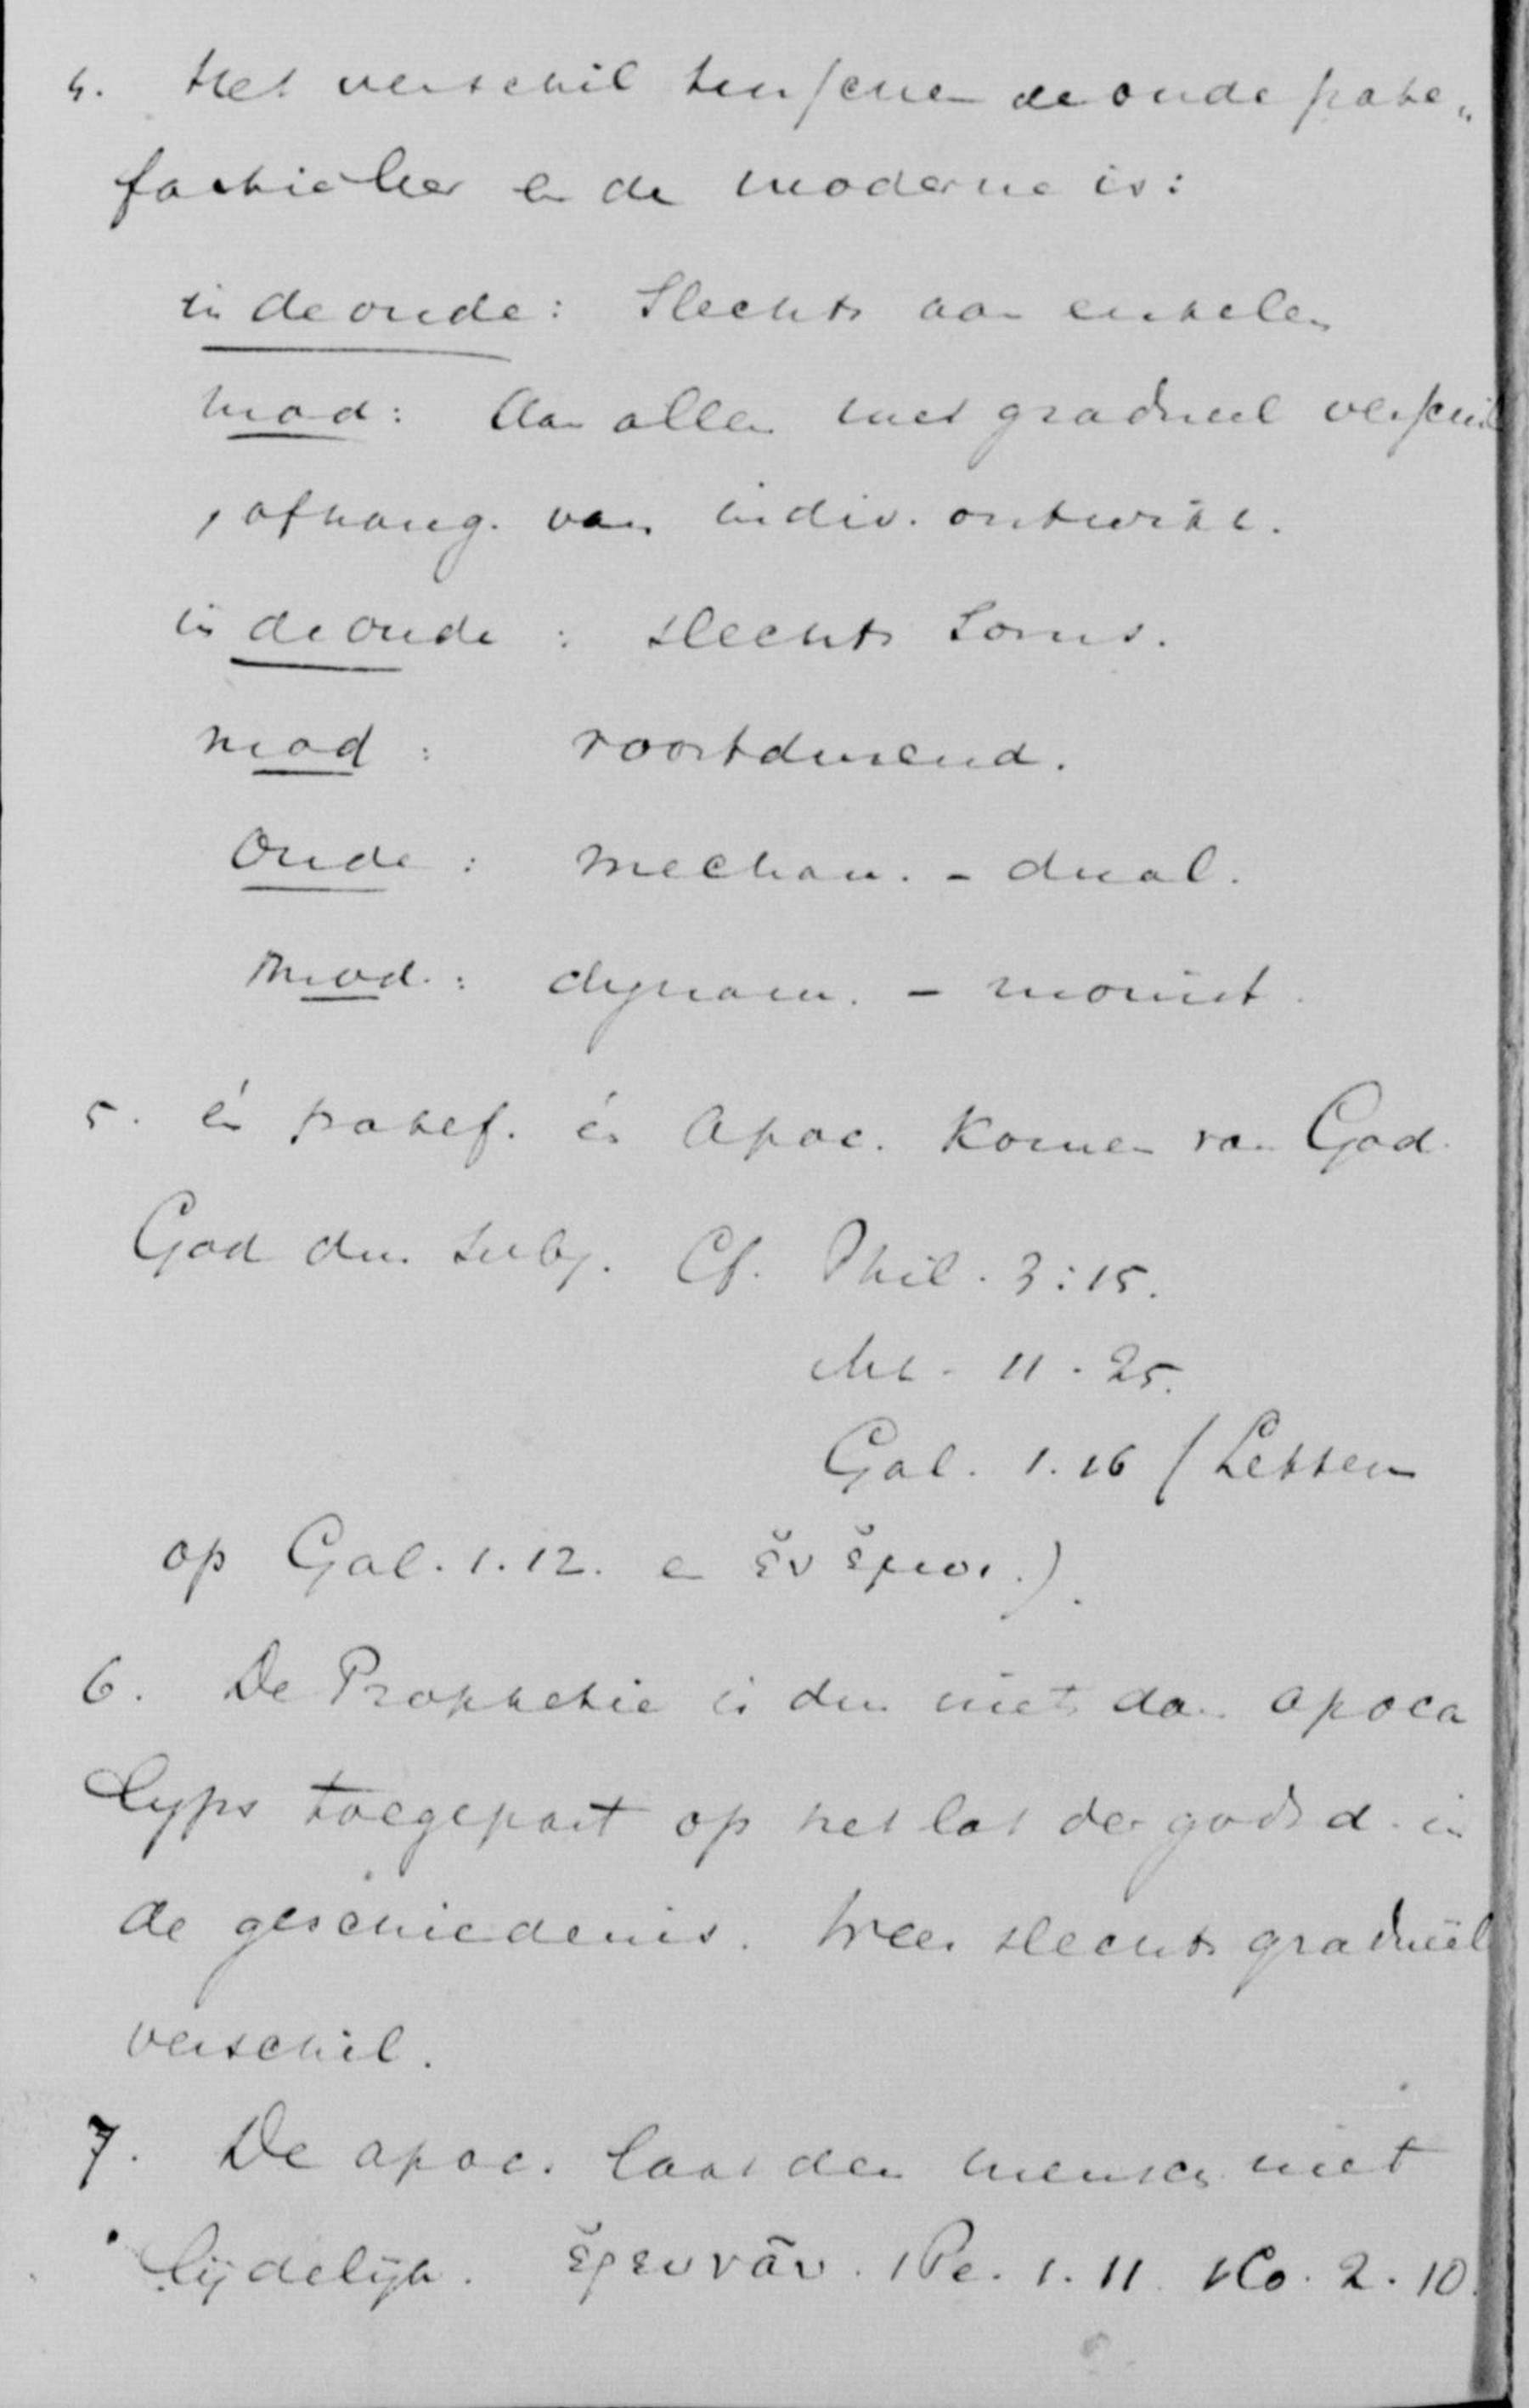 4. Het verschil tusschen de oude pate„
factieleer en de moderne is:
in de oude: Slechts aan enkelen
mod: Aan allen met gradueel verschil
, afhang. van indiv. ontwikk.
in de oude : slechts soms.
mod : voortdurend.
Oude : mechan. - dual.
Mod. : dynam. - monist.
5. én patef. én Apoc. komen van God.
God dus subj. Cf. Phil. 3:15.
Mt. 11.25.
Gal. 1.16 (Letten
op Gal. 1.12. en ἐν ἐμοι.).
6. De Prophetie is dus niets dan apoca
lyps toegepast op het lot der godsd. in
de geschiedenis. Weer slechts gradueel
verschil.
7. De apoc. laat den mensch niet
lijdelijk. ἐρευνᾶν. 1 Pe. 1.11. 1 Co. 2.10.